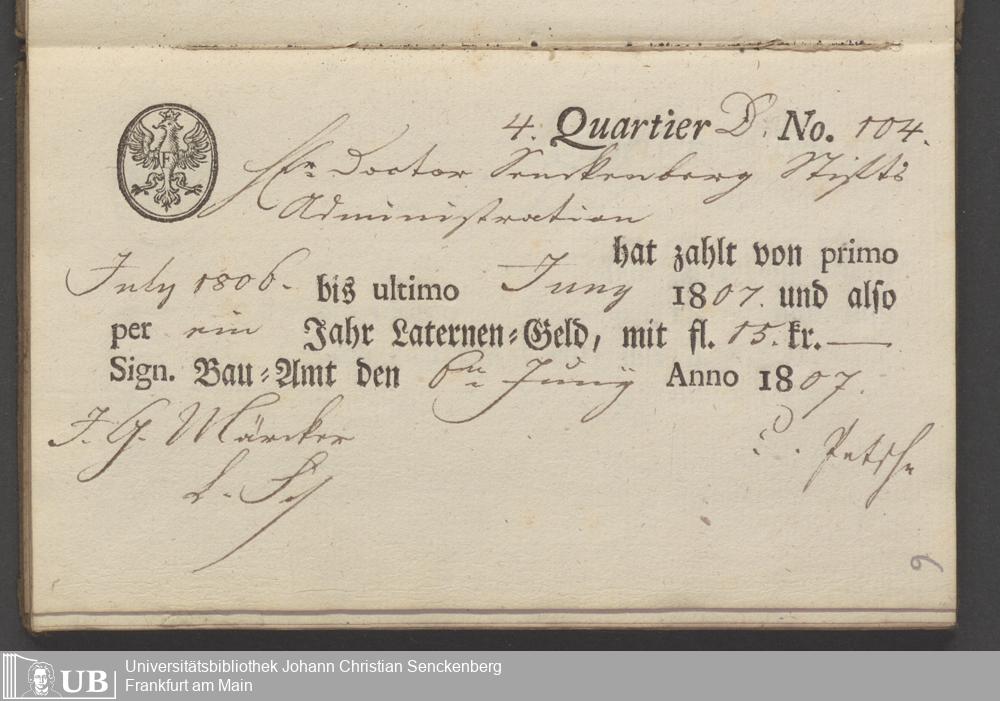 4. Quartier D. No. 104.
Hr. Doctor Senckenberg Stifts
Administration
hat zahlt von primo
July 1806. bis ultimo Juny 1807. und also
per ein Jahr Laternen-Geld, mit fl. 15. kr. —
Sign. Bau-Amt den 6n Juny Anno 1807.
J. G. Märcker
Petsch
9
UB
Universitätsbibliothek Johann Christian Senckenberg
Frankfurt am Main